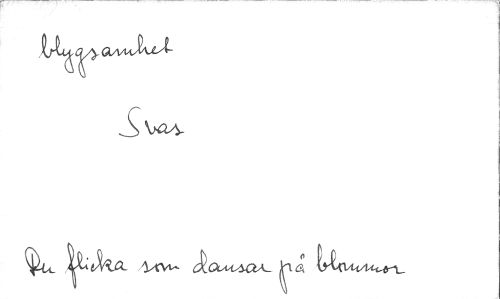 blygsamhet
Svas
Du flicka som dansar på blommor